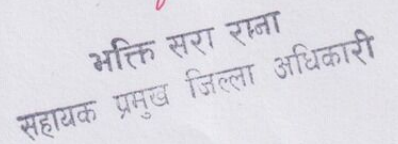 भक्ति सरा राना
सहायक प्रमुख जिल्ला अधिकारी